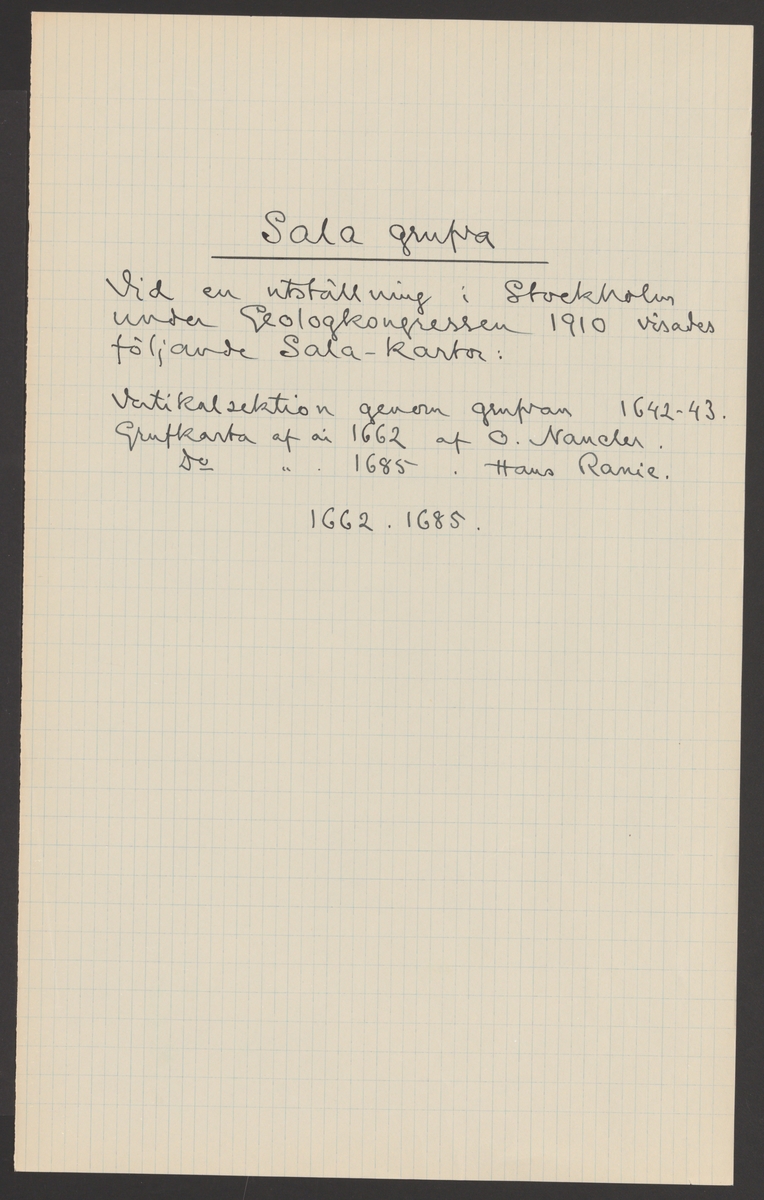 Sala grufva
Vid en utställning i Stockholm
under Geologkongressen 1910 visades
följande Sala-kartor:
Vertikalsektion genom grufvan 1642-43.
Grufkarta af år 1662 af O. Naucler.
Do " . 1685 . Hans Ranie.
1662 . 1685.